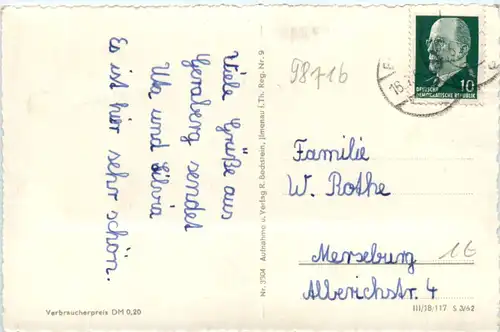 Viele Grüße aus
Geraberg sendet
Uta und Silvia
Es ist hier sehr schön.
Verbraucherpreis DM 0,20
Nr. 3304 Aufnahme u. Verlag R. Bechstein, Ilmenau i. Th. Reg. Nr. 9
98716
DEUTSCHE
DEMOKRATISCHE REPUBLIK
10
Familie
W. Rothe
Merseburg 16
Alberichstr. 4
III/18/117 S 3/62